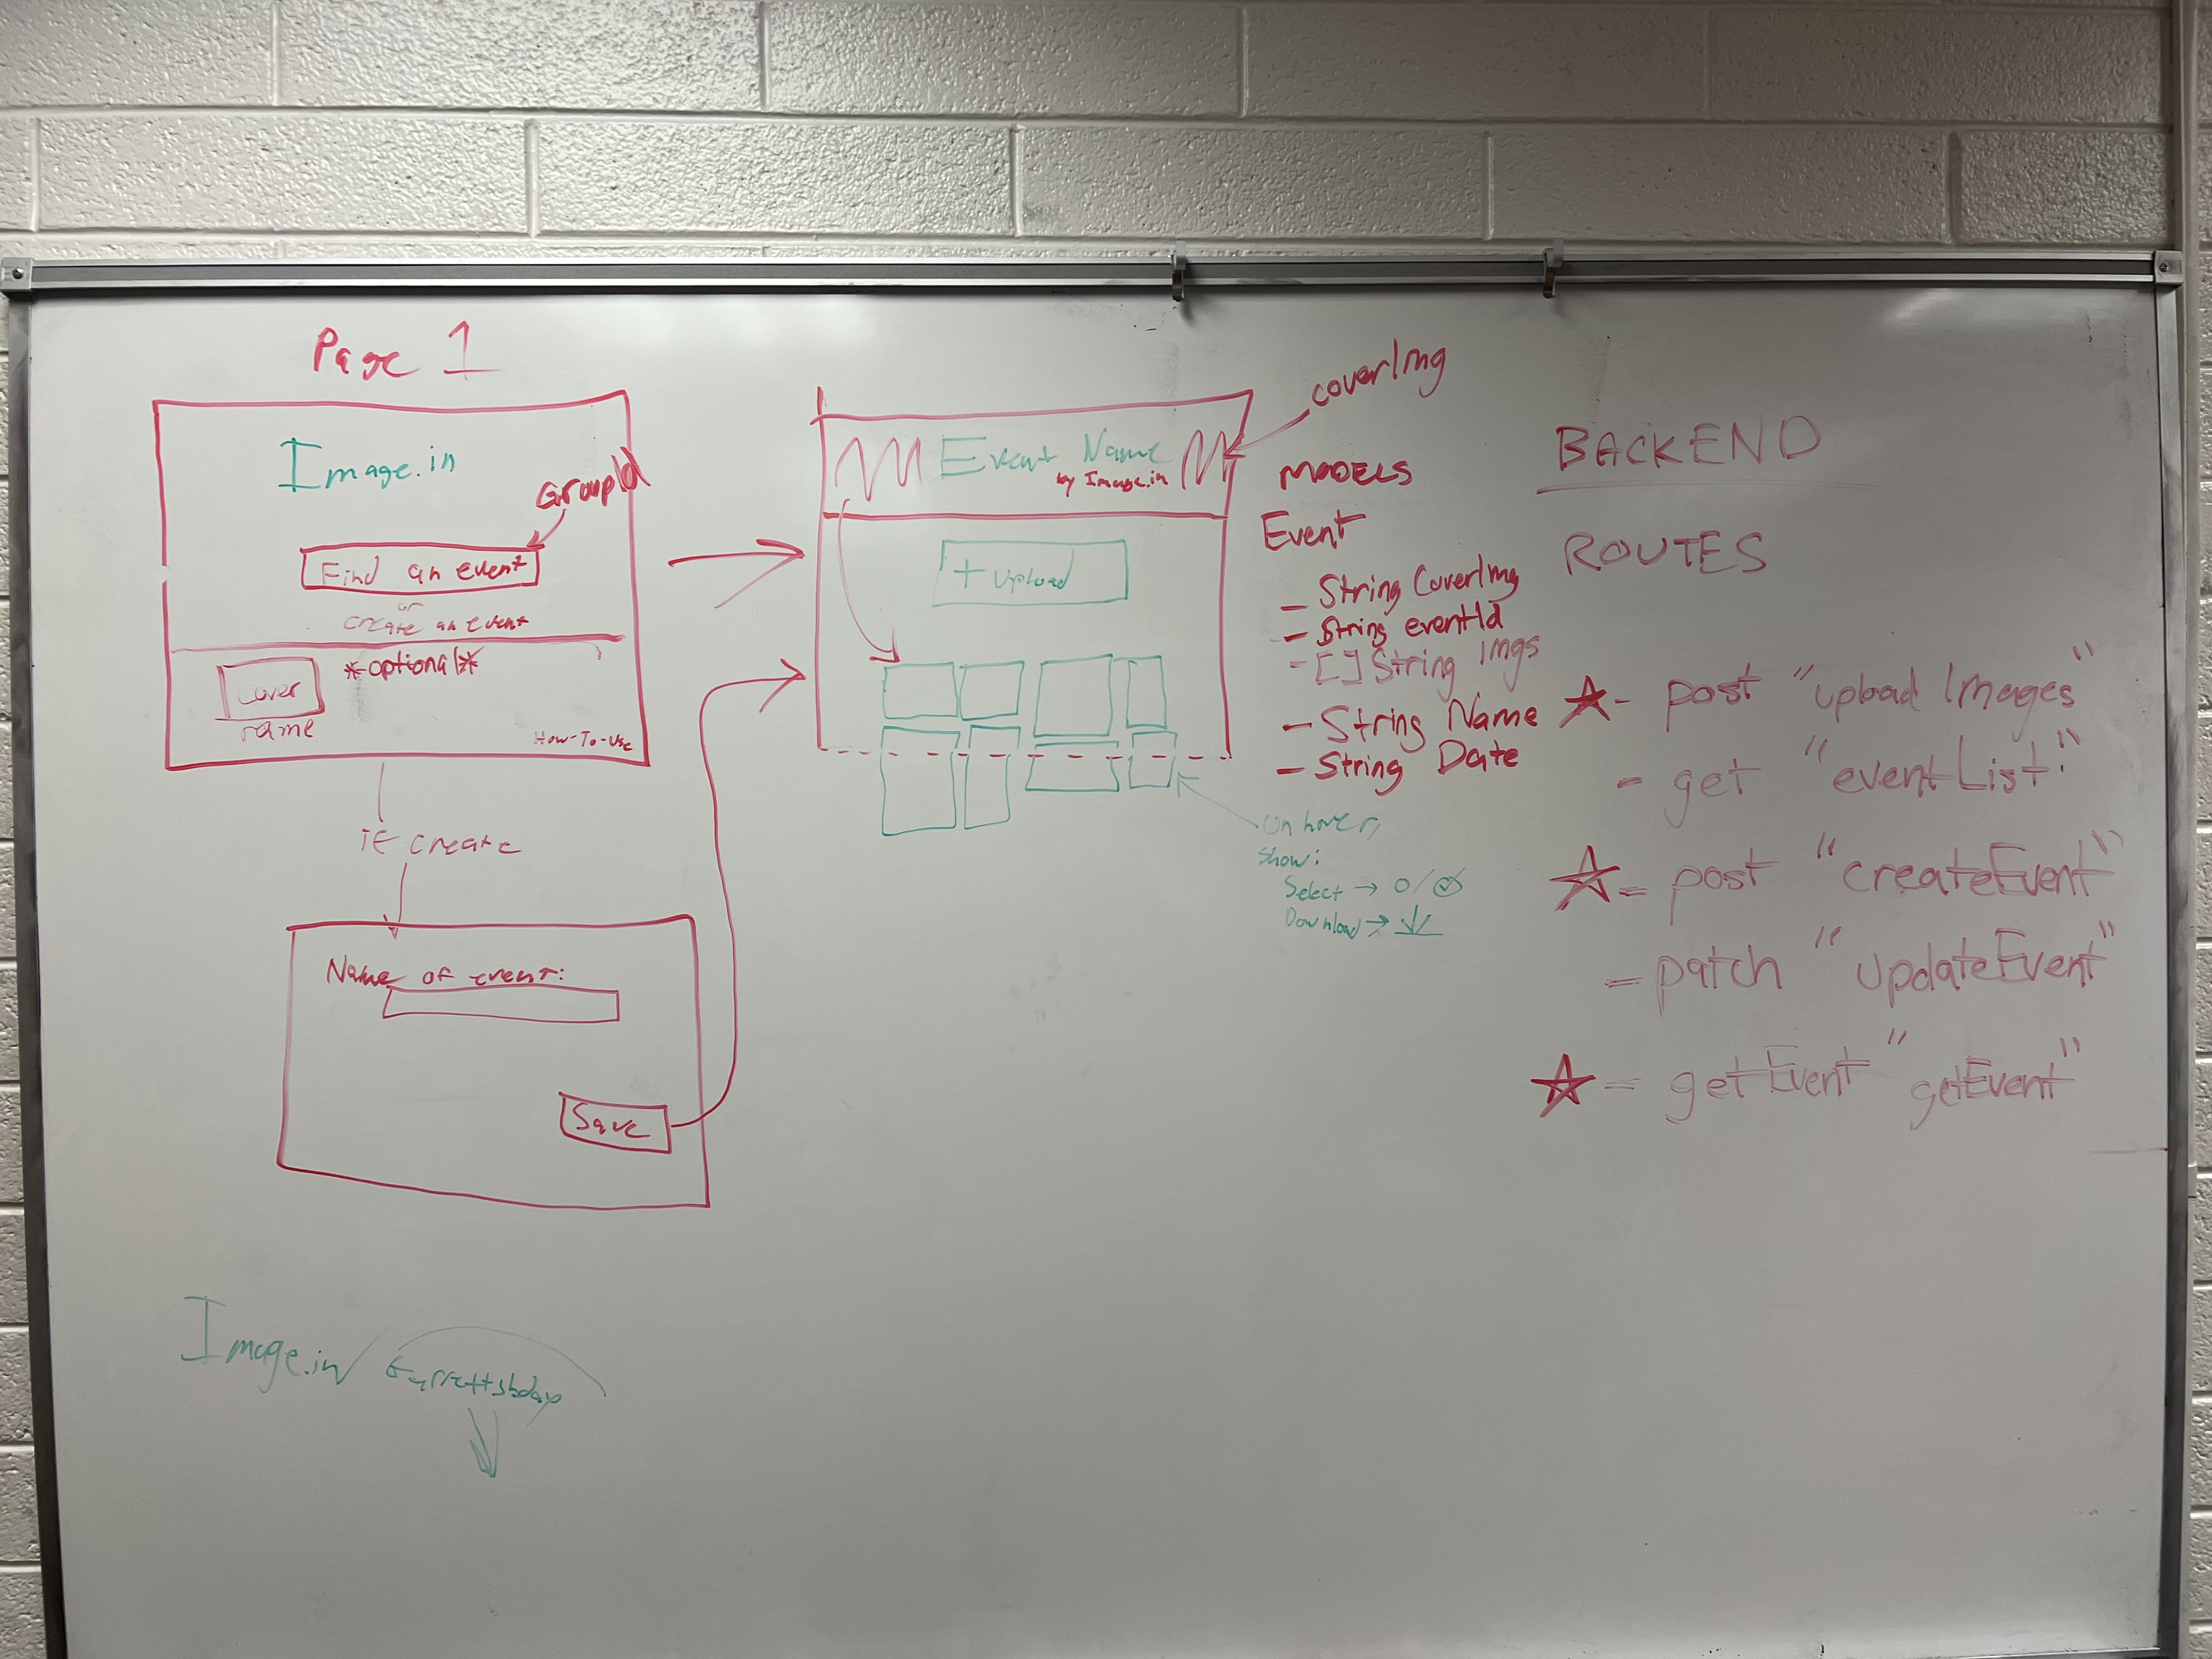 Page 1
Image.in
GroupId
Find an event
or
create an event
*optional*
Cover
name
How-To-Use
If create
Name of event:
Save
Image.in/
coverImg
Event Name
by Image.in
+ Upload
On hover,
Show:
Select → O/
Download →
MODELS
Event
- String CoverImg
- String eventId
- [] String Imgs
- String Name
- String Date
BACKEND
ROUTES
- post "upload Images"
- get "eventList"
= post "createEvent"
- patch "updateEvent"
= getEvent "getEvent"